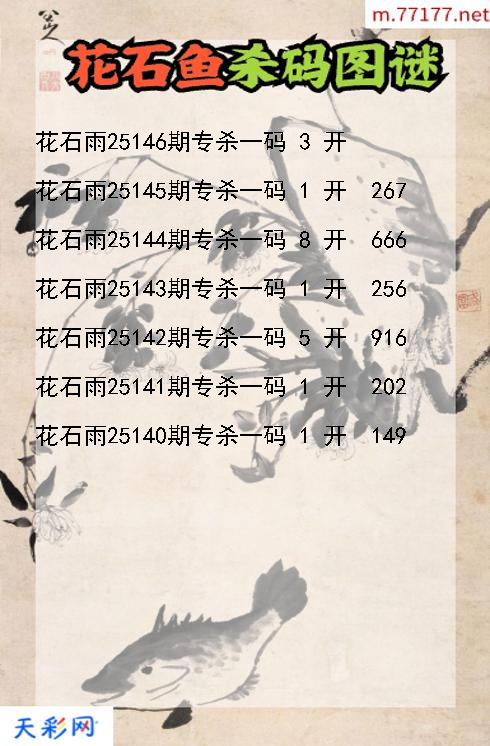 m.77177.net
八
花石鱼杀码图谜
花石雨25146期专杀一码 3 开
花石雨25145期专杀一码 1 开 267
花石雨25144期专杀一码 8 开 666
花石雨25143期专杀一码 1 开 256
花石雨25142期专杀一码 5 开 916
花石雨25141期专杀一码 1 开 202
花石雨25140期专杀一码 1 开 149
天彩网